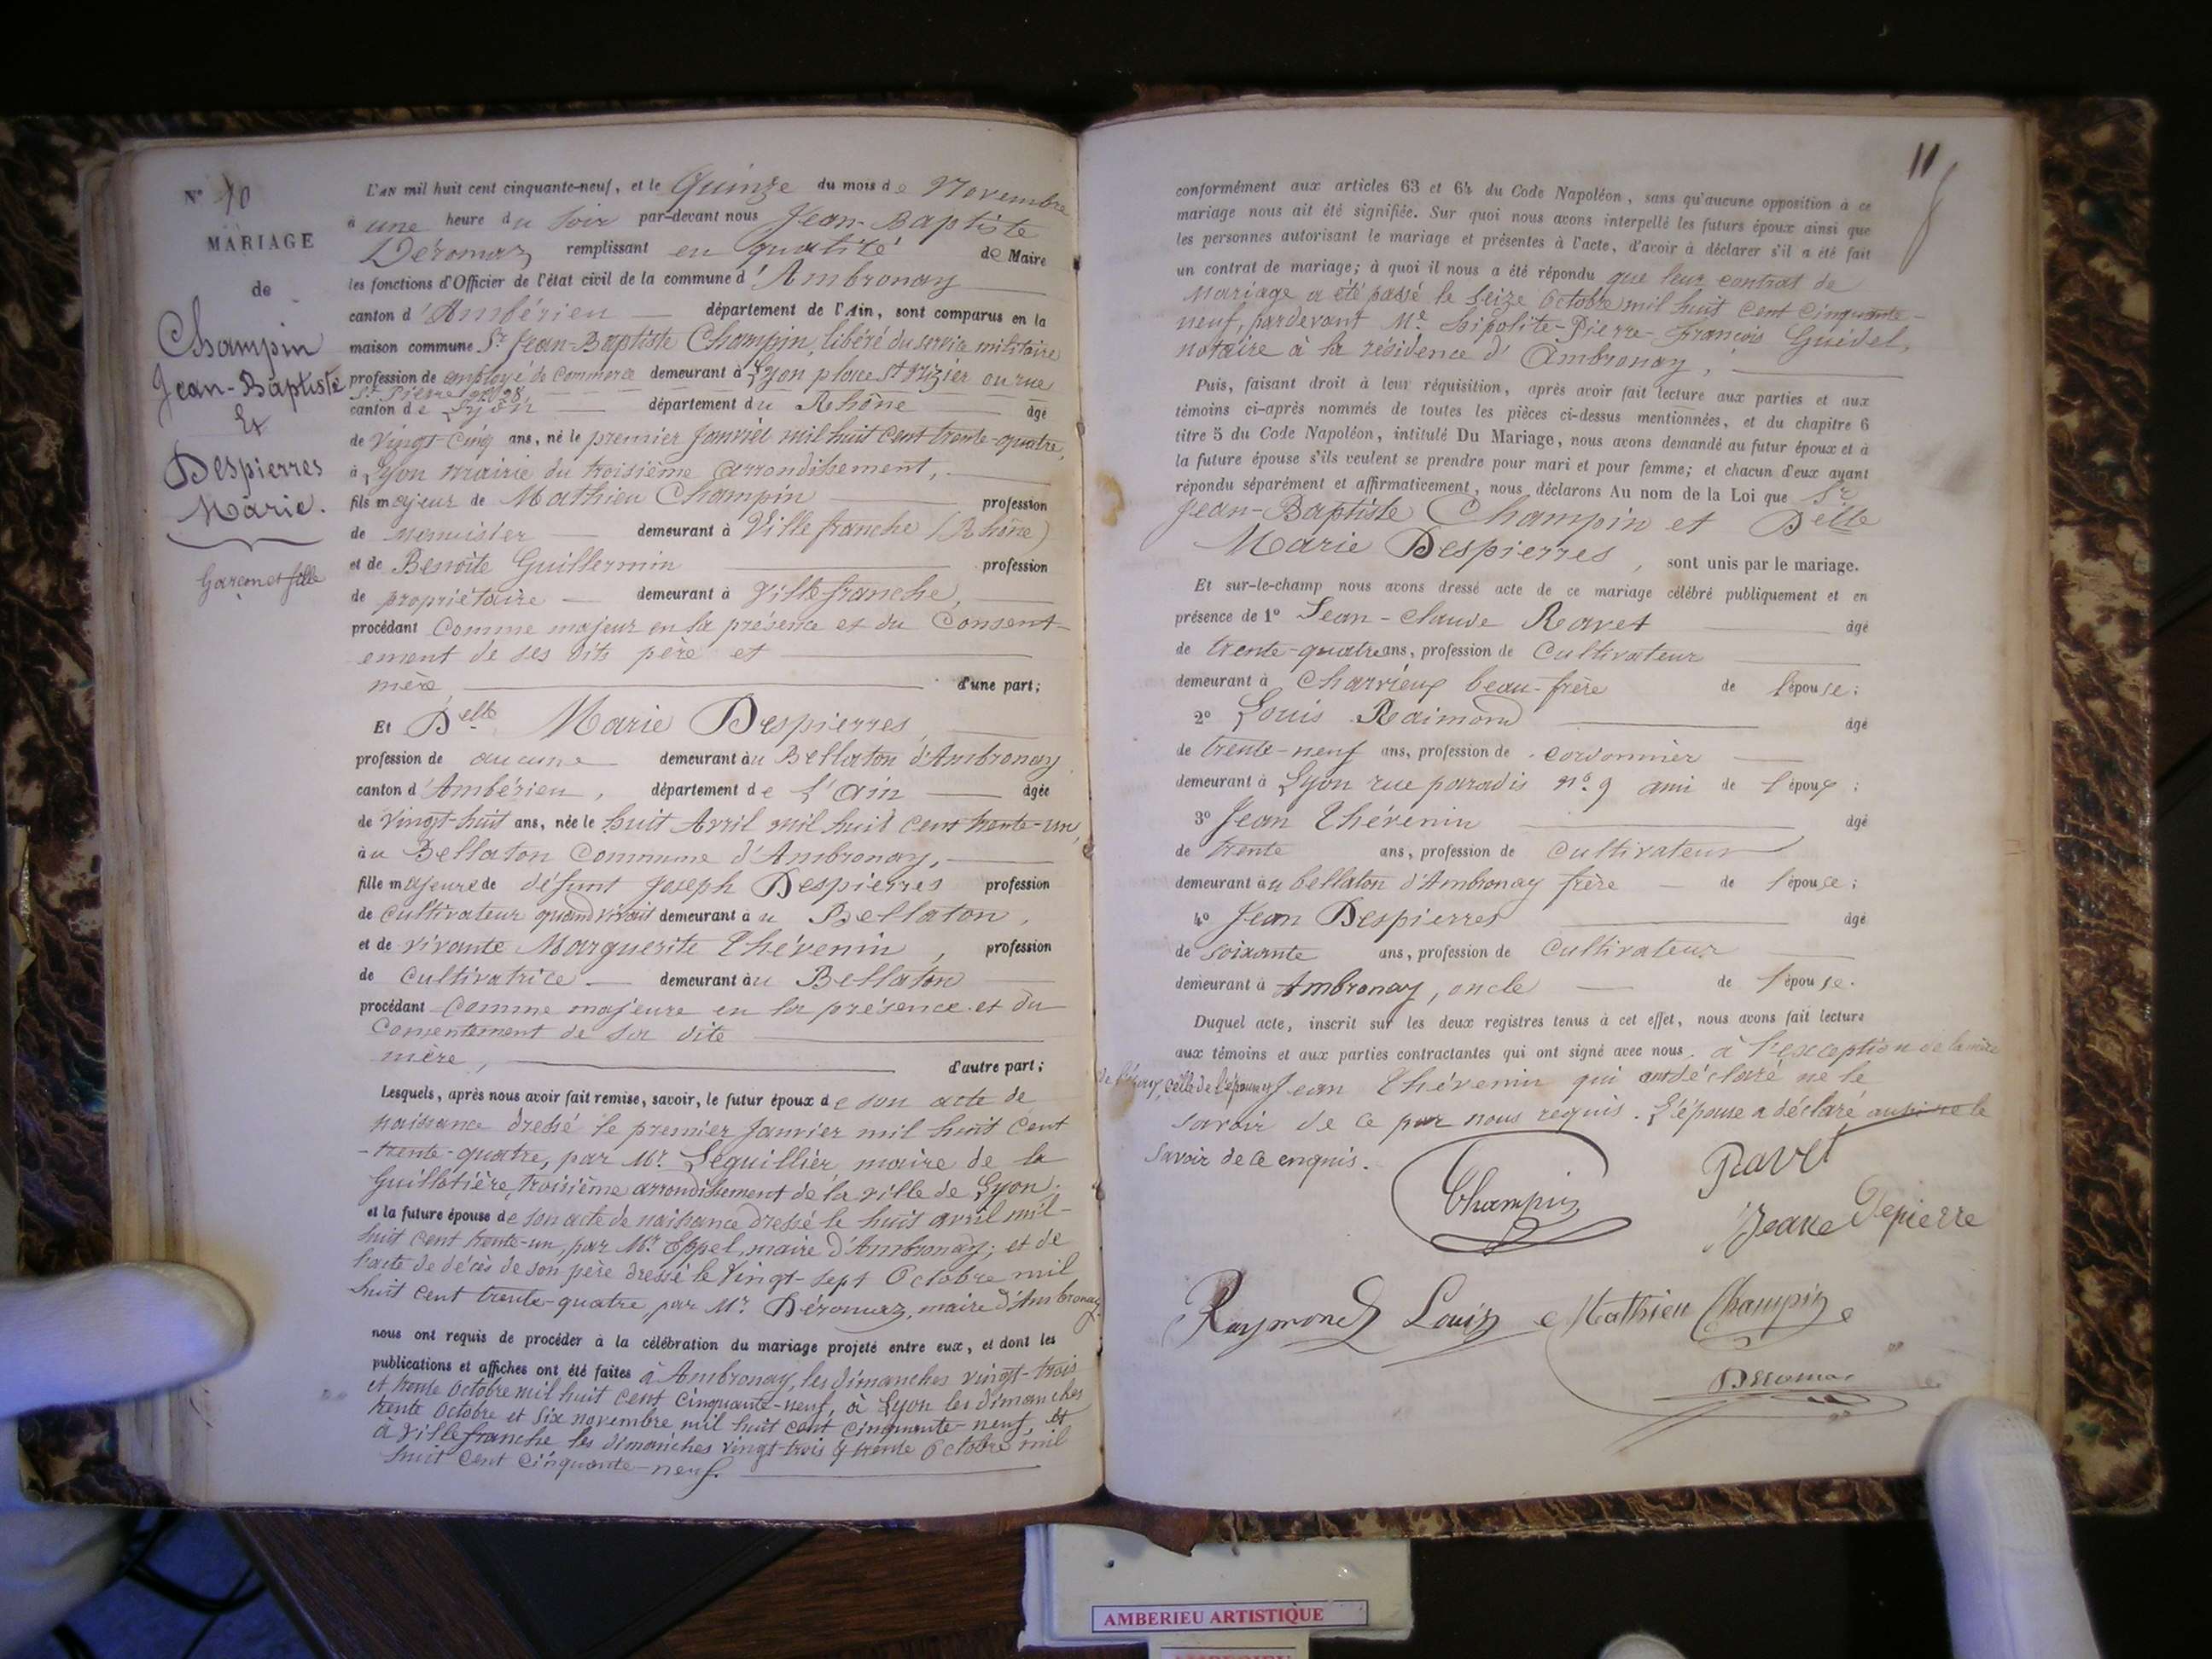 N° 10
MARIAGE
de
Champin
Jean-Baptiste
Et
Despierres
Marie.
Garçon et fille
L'AN mil huit cent cinquante-neuf, et le Quinze du mois de Novembre
à une heure du soir par-devant nous Jean-Baptiste
Déromas remplissant en qualité de Maire
les fonctions d'Officier de l'état civil de la commune d'Ambronay
canton d'Ambérieu département de l'Ain, sont comparus en la
maison commune Sr Jean-Baptiste Champin, libéré du service militaire
profession de employé de Commerce demeurant à Lyon place St Nizier ou rue
St Pierre n° 28
canton de Lyon département du Rhône âgé
de vingt-cinq ans, né le premier Janvier mil huit cent trente-quatre,
à Lyon mairie du troisième arrondissement,
fils majeur de Mathieu Champin profession
de menuisier demeurant à Villefranche (Rhône)
et de Benoîte Guillermin profession
de propriétaire demeurant à Villefranche,
procédant Comme majeur en la présence et du Consent-
ement de ses dits père et
mère, d'une part;
Et Delle Marie Despierres,
profession de aucune demeurant au Bellaton d'Ambronay
canton d'Ambérieu, département de l'Ain âgée
de vingt-huit ans, née le huit Avril mil huit cent trente-un,
au Bellaton Commune d'Ambronay,
fille majeure de défunt Joseph Despierres profession
de Cultivateur quand vivait demeurant à au Bellaton,
et de vivante Marguerite Thévenin, profession
de Cultivatrice demeurant au Bellaton
procédant Comme majeure en la présence et du
Consentement de sa dite
mère, d'autre part;
Lesquels, après nous avoir fait remise, savoir, le futur époux de son acte de
naissance dressé le premier Janvier mil huit cent
-trente-quatre, par Mr. Seguillier maire de la
Guillotière, troisième arrondissement de la ville de Lyon.
et la future épouse de son acte de naissance dressé le huit avril mil-
huit cent trente-un, par Mr. Eppel, maire d'Ambronay; et de
l'acte de décès de son père dressé le Vingt-sept Octobre mil
huit cent trente-quatre, par Mr. Déromas, maire d'Ambronay.
nous ont requis de procéder à la célébration du mariage projeté entre eux, et dont les
publications et affiches ont été faites à Ambronay, les dimanches vingt-trois
et trente Octobre mil huit cent cinquante-neuf, à Lyon les dimanches
trente Octobre et six novembre mil huit cent cinquante-neuf, et
à Villefranche les dimanches vingt-trois & trente Octobre mil
huit cent cinquante-neuf.
11
conformément aux articles 63 et 64 du Code Napoléon, sans qu'aucune opposition à ce
mariage nous ait été signifiée. Sur quoi nous avons interpellé les futurs époux ainsi que
les personnes autorisant le mariage et présentes à l'acte, d'avoir à déclarer s'il a été fait
un contrat de mariage; à quoi il nous a été répondu que leur contrat de
Mariage a été passé le seize Octobre mil huit cent cinquante-
neuf, pardevant Me. Hipolite-Pierre-François Guédel,
notaire à la résidence d'Ambronay,
Puis, faisant droit à leur réquisition, après avoir fait lecture aux parties et aux
témoins ci-après nommés de toutes les pièces ci-dessus mentionnées, et du chapitre 6
titre 5 du Code Napoléon, intitulé Du Mariage, nous avons demandé au futur époux et à
la future épouse s'ils veulent se prendre pour mari et pour femme; et chacun d'eux ayant
répondu séparément et affirmativement, nous déclarons Au nom de la Loi que Sr
Jean-Baptiste Champin et Delle
Marie Despierres, sont unis par le mariage.
Et sur-le-champ nous avons dressé acte de ce mariage célébré publiquement et en
présence de 1° Jean-Claude Ravet âgé
de trente-quatre ans, profession de Cultivateur
demeurant à Charrieux beau-frère de l'épouse;
2° Louis Raimond âgé
de trente-neuf ans, profession de cordonnier
demeurant à Lyon rue paradis n°. 9 ami de l'époux;
3° Jean Thévenin âgé
de trente ans, profession de Cultivateur
demeurant au bellaton d'Ambronay frère de l'épouse;
4° Jean Despierres âgé
de soixante ans, profession de Cultivateur
demeurant à Ambronay, oncle de l'épouse.
Duquel acte, inscrit sur les deux registres tenus à cet effet, nous avons fait lecture
aux témoins et aux parties contractantes qui ont signé avec nous, à l'exception de la mère
de l'époux, celle de l'épouse et Jean Thévenin qui ont déclaré ne le
savoir de ce par nous requis. L'épouse a déclaré aussi ne le
savoir de ce enquis.
Champin
Ravet
Jeane Depierre
Raymond Louis
Mathieu Champin
Déromas
AMBERIEU ARTISTIQUE